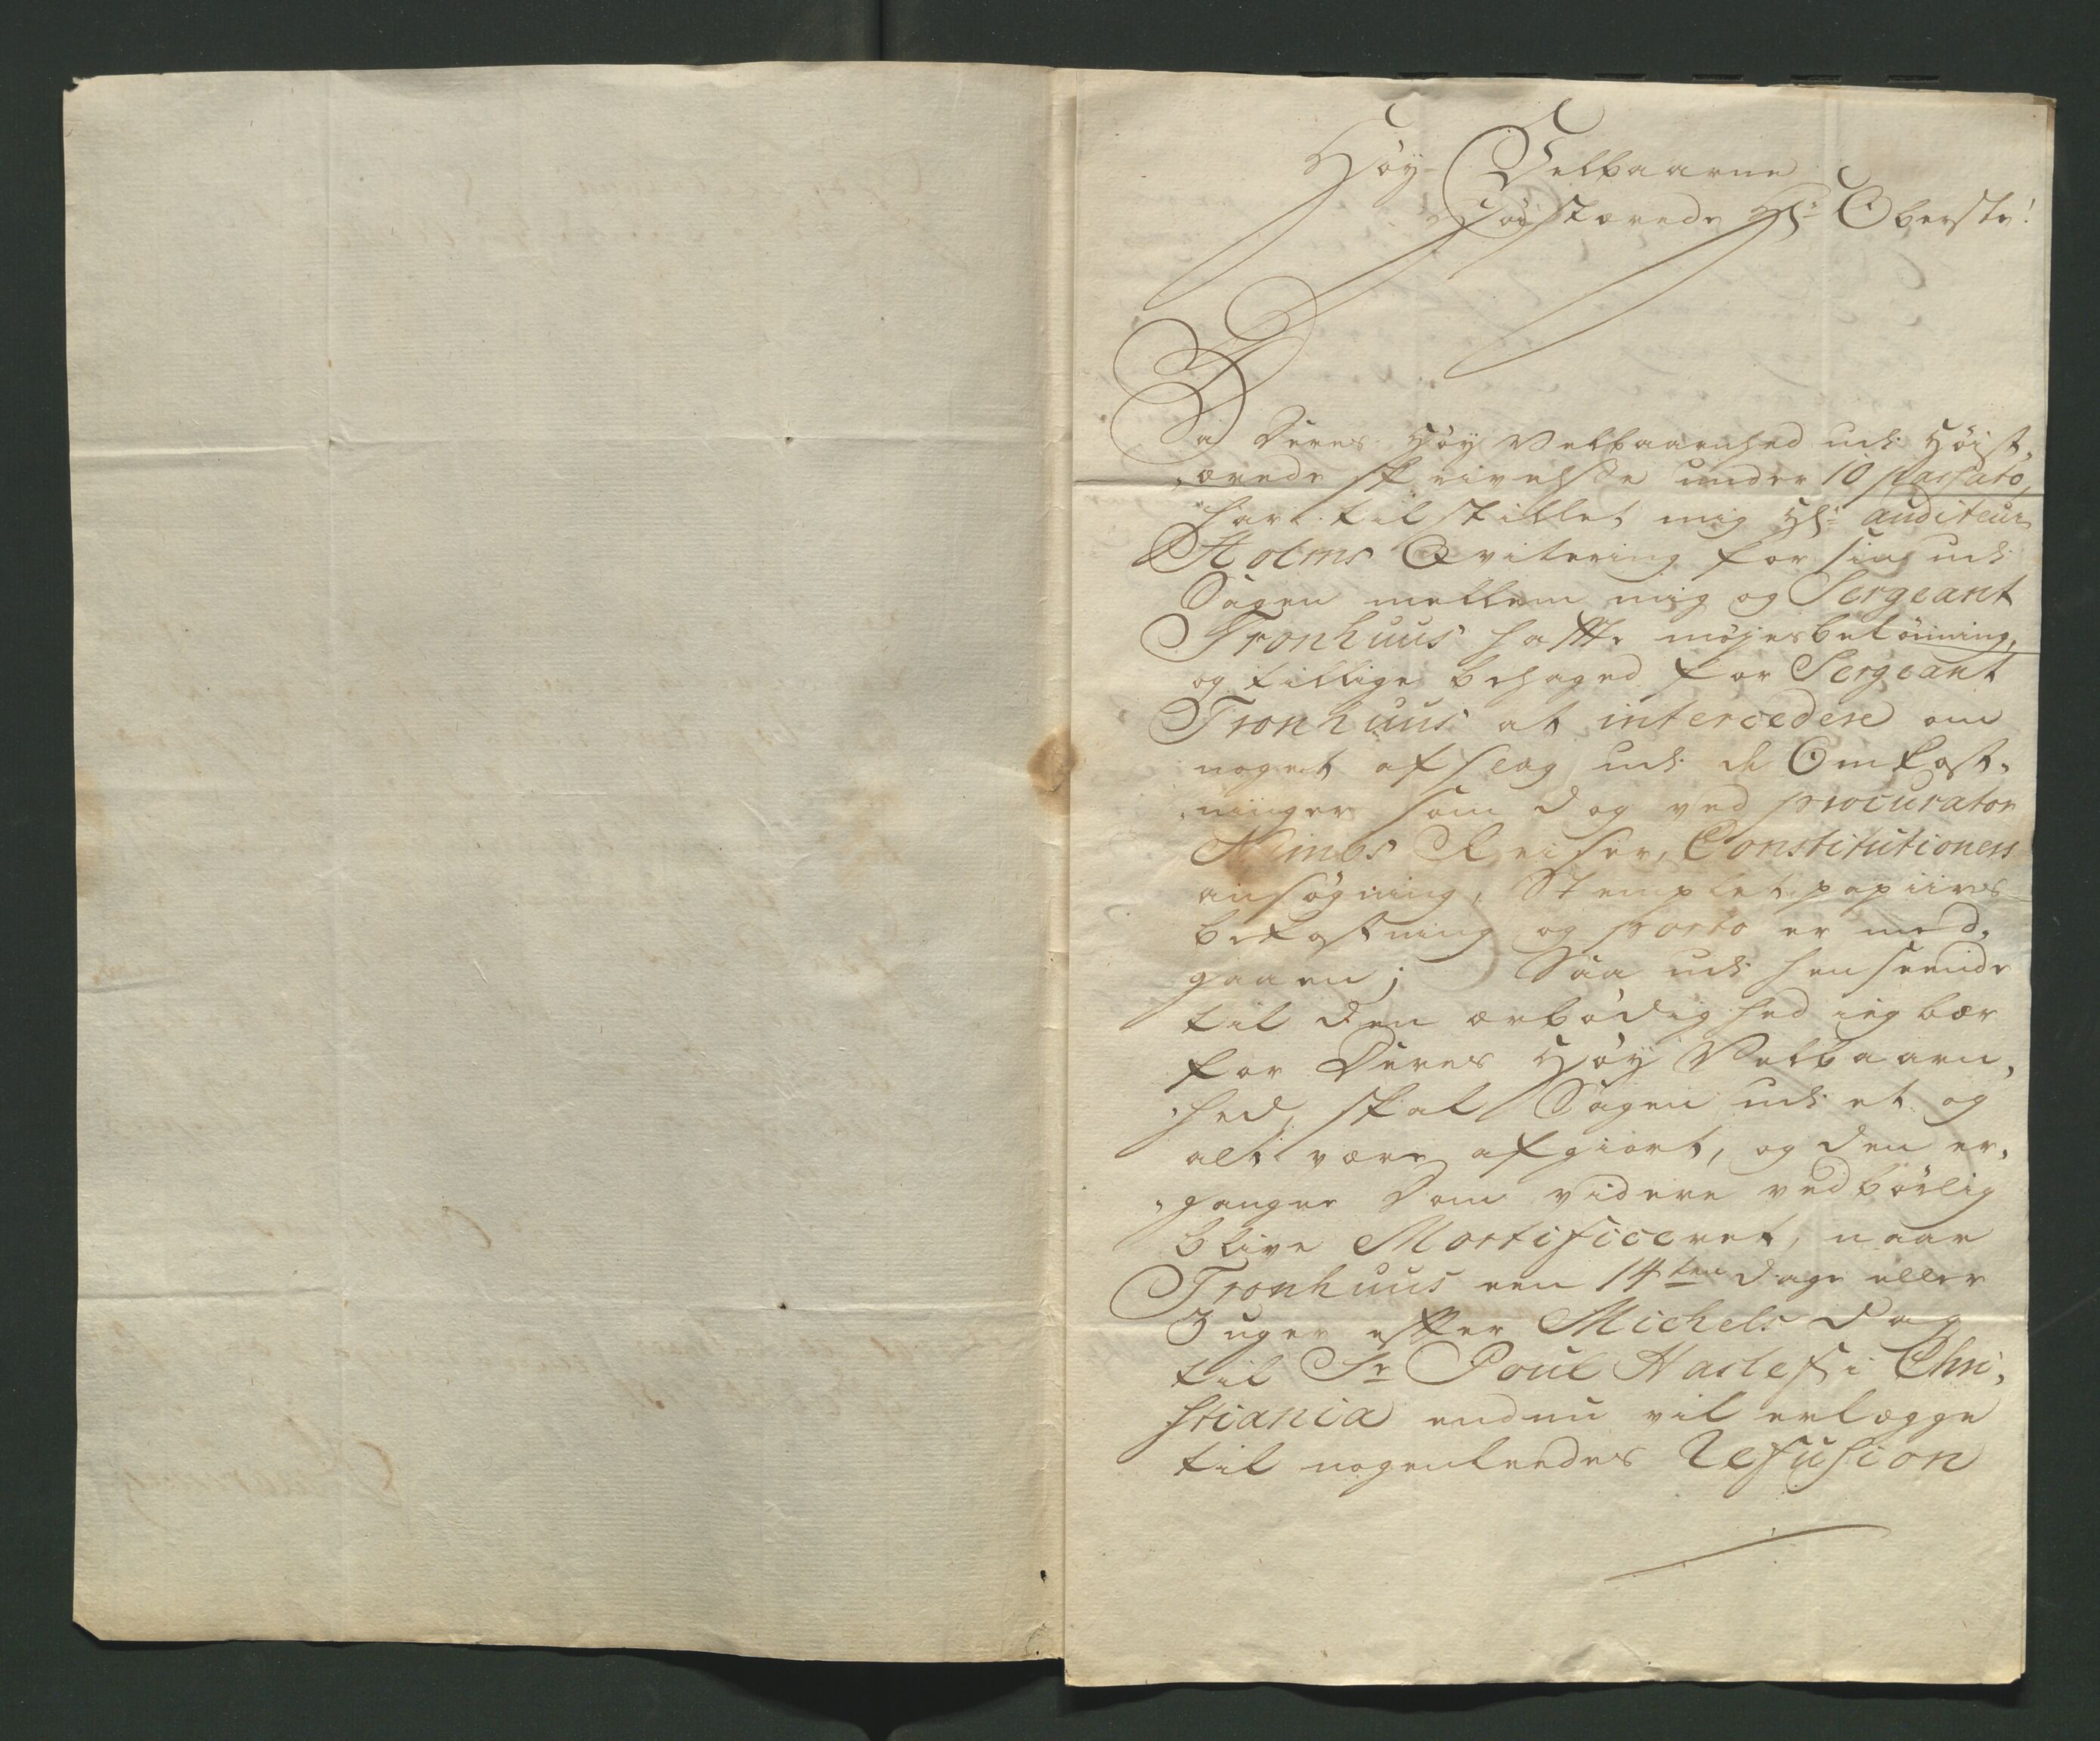 Høy Velbaarne
Høistærede Hr: Oberste!
Da Deres Høy Velbaarnhed udi Høist,
,ærede skrivelse under 10 passato,
har tilstillet mig Hr: auditeur
Holms Qvitering for sin udi
Sagen mellem mig og Sergeant
Tronhuus hafte møyesbelønning,
og tillige behaged for Sergeant
Tronhuus at intercedere om
noget afslag udi de Omkost,
,ninger som dog ved procurator
Nimbs Reiser, Constitutionens
ansøgning, Stemplet papiirs
bekostning og porto er med,
gaaen; Saa udi henseende
til den ærbødighed ieg bær
for Deres Høy Velbaarn,
,hed, skal Sagen udi et og
alt være afgiort, og den er,
,gangne Dom videre vedbørlig
blive Mortificeret, naar
Tronhuus een 14ten dage eller
3 uger efter Michels Dag
til Sr Poul Hasles i Chri,
stiania endnu vil erlægge
til nogenleedes Refusion